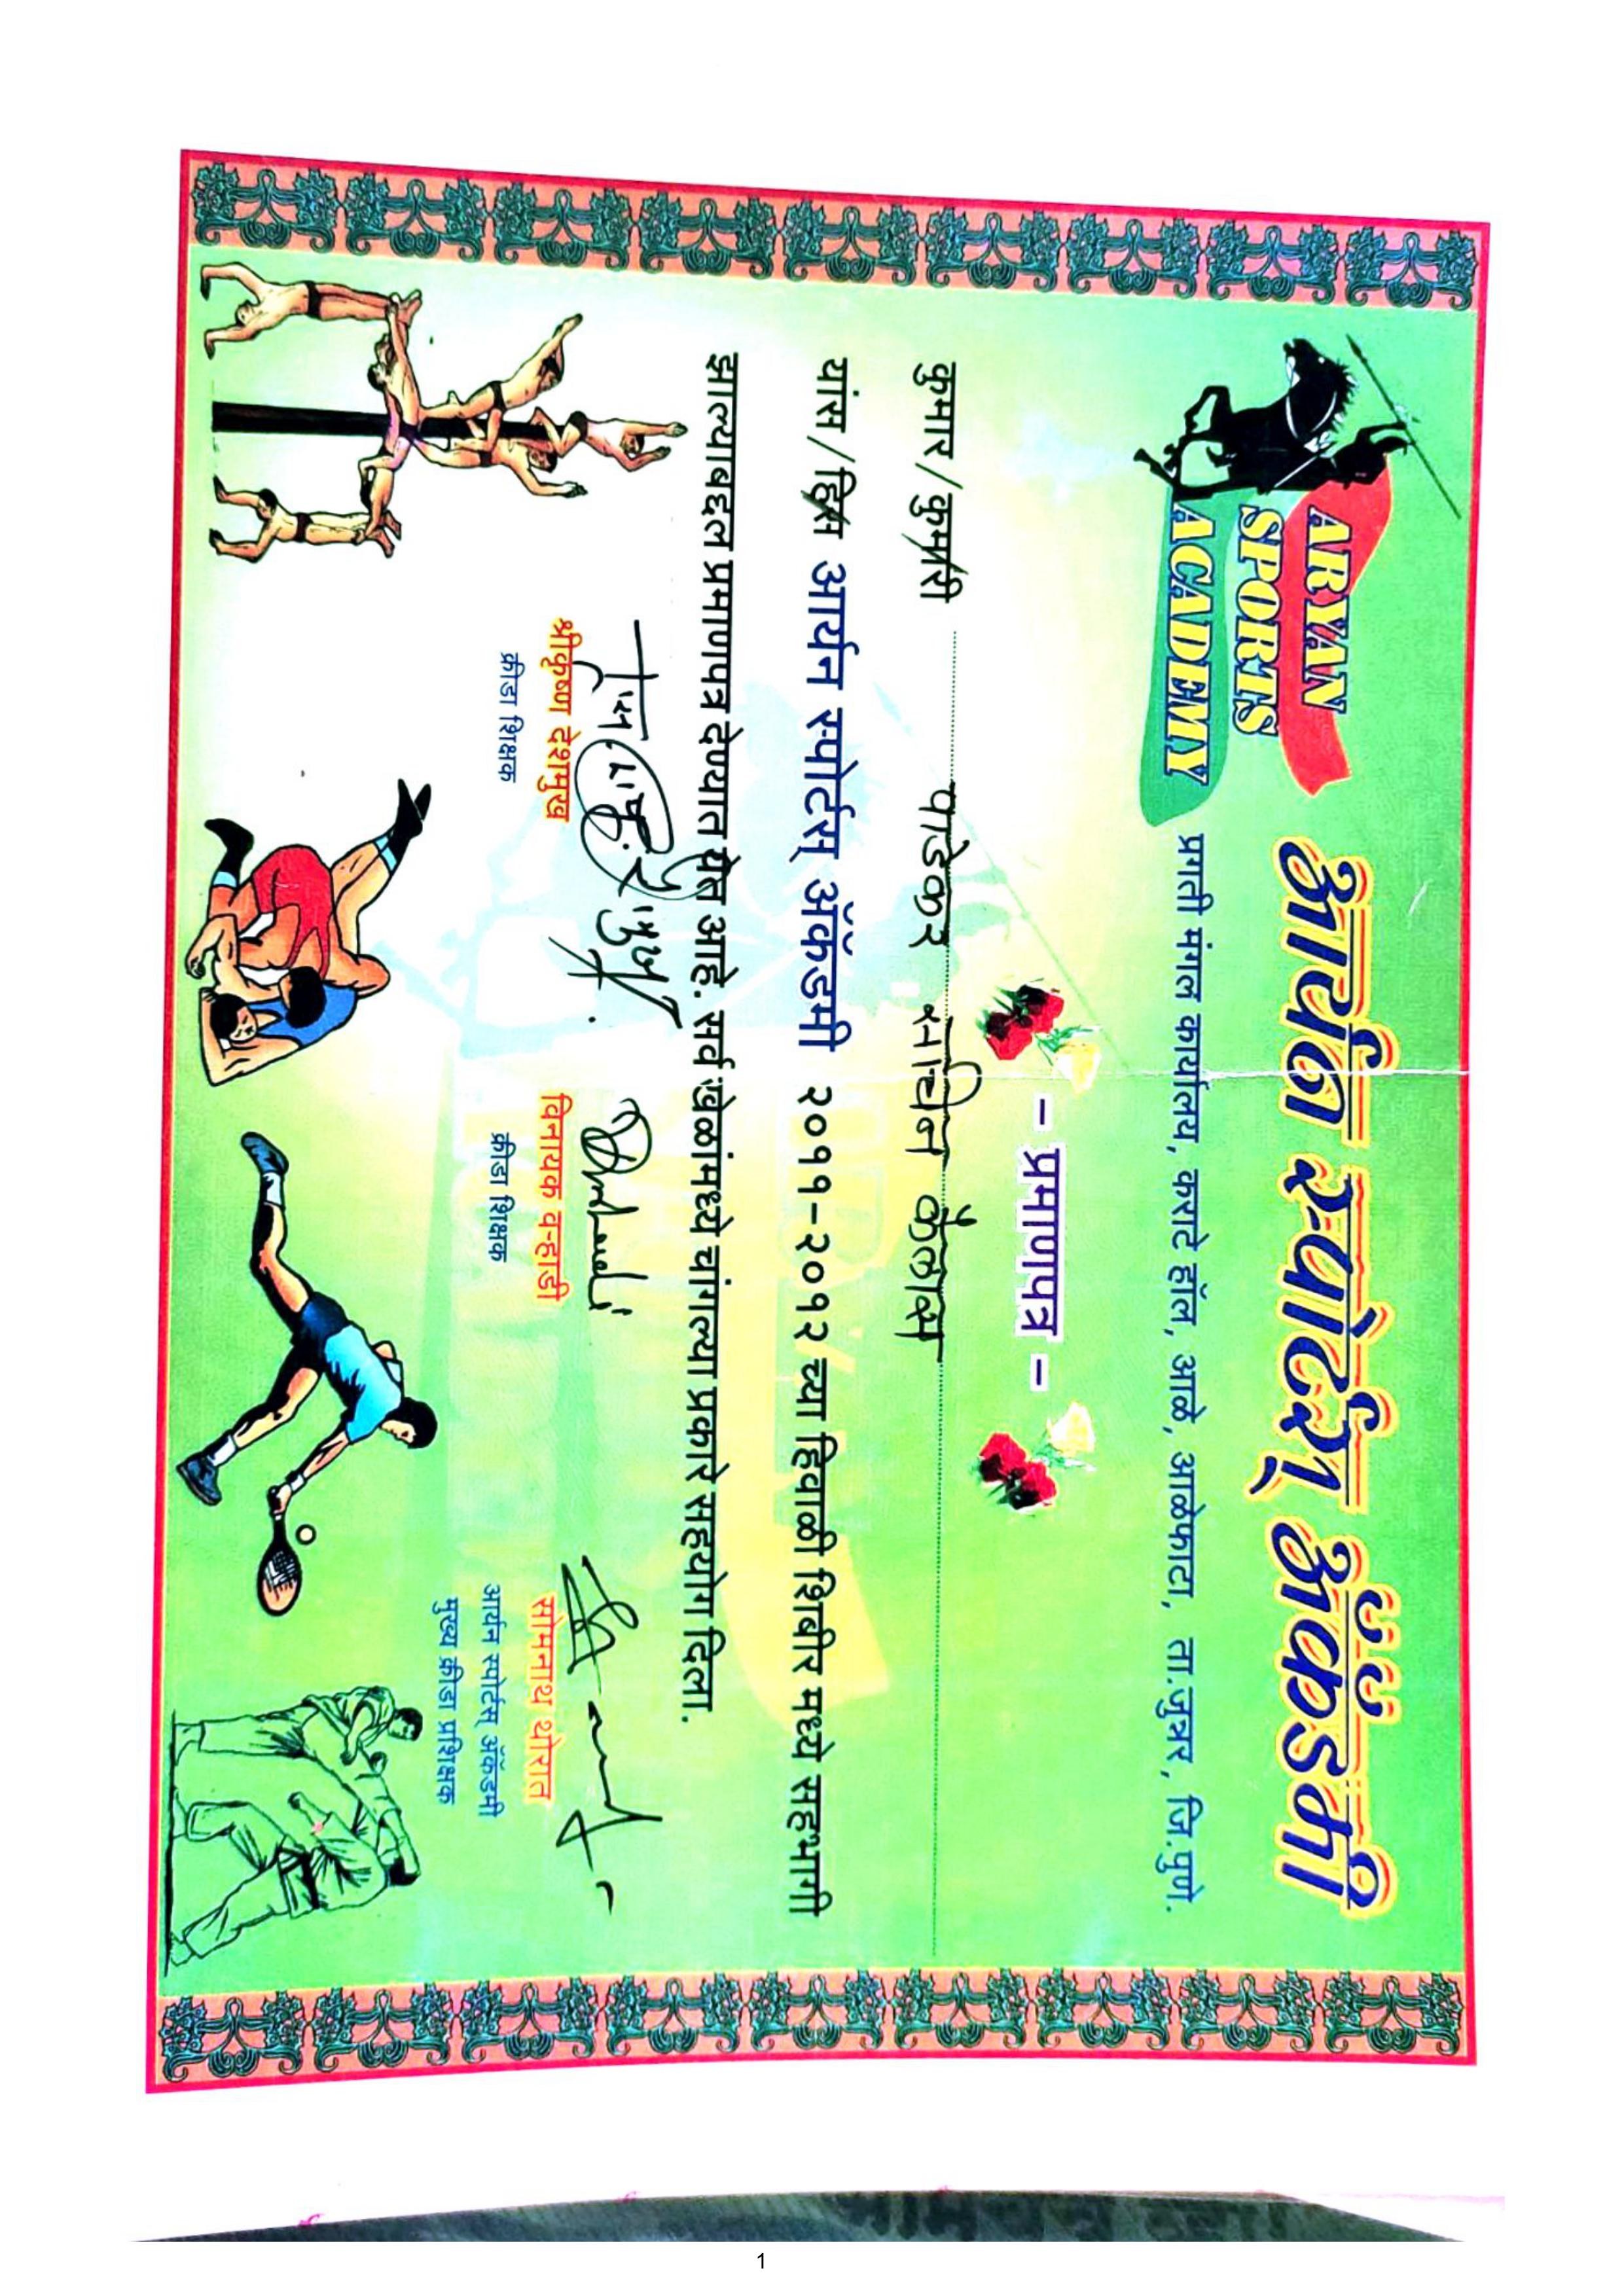 ARYAN
SPORTS
ACADEMY
आर्यन स्पोर्टस् ॲकॅडमी
प्रगती मंगल कार्यालय, कराटे हॉल, आळे, आळेफाटा, ता.जुन्नर, जि.पुणे.
– प्रमाणपत्र –
कुमार/कुमारी पाडेकर सचिन कैलास
यांस/हिस आर्यन स्पोर्टस् ॲकॅडमी २०११-२०१२ च्या हिवाळी शिबीर मध्ये सहभागी
झाल्याबद्दल प्रमाणपत्र देण्यात येत आहे. सर्व खेळांमध्ये चांगल्या प्रकारे सहयोग दिला.
श्रीकृष्ण देशमुख
क्रीडा शिक्षक
विनायक वऱ्हाडी
क्रीडा शिक्षक
सोमनाथ थोरात
आर्यन स्पोर्टस् ॲकॅडमी
मुख्य क्रीडा प्रशिक्षक
1